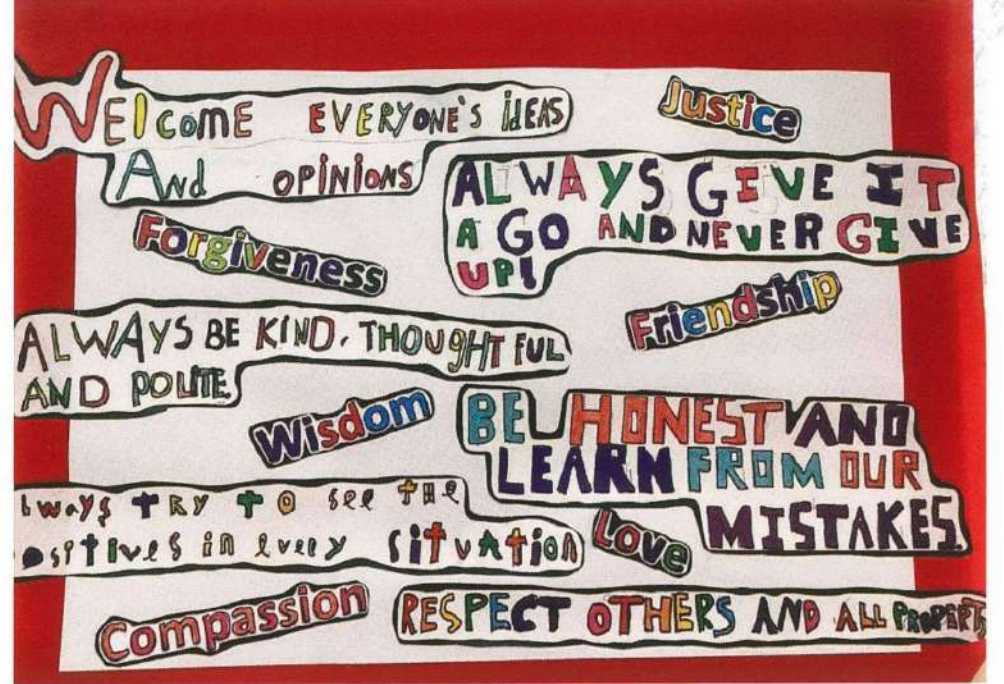 WElcomE EVERYONE'S iDEAS
ANd OPiNiONS
Justice
ALWAYS GIVE IT
A GO AND NEVER GIVE
UP!
Forgiveness
Friendship
ALWAYS BE KIND, THOUGHTFUL
AND POLITE.
Wisdom
BE HONEST AND
LEARN FROM OUR
MISTAKES
lways tRY tO see tHe
ositives in every situAtion
Love
Compassion
RESPECT OTHERS AND ALL PROPERT